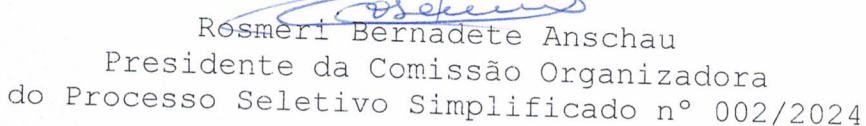 Rosmeri Bernadete Anschau
Presidente da Comissão Organizadora
do Processo Seletivo Simplificado nº 002/2024